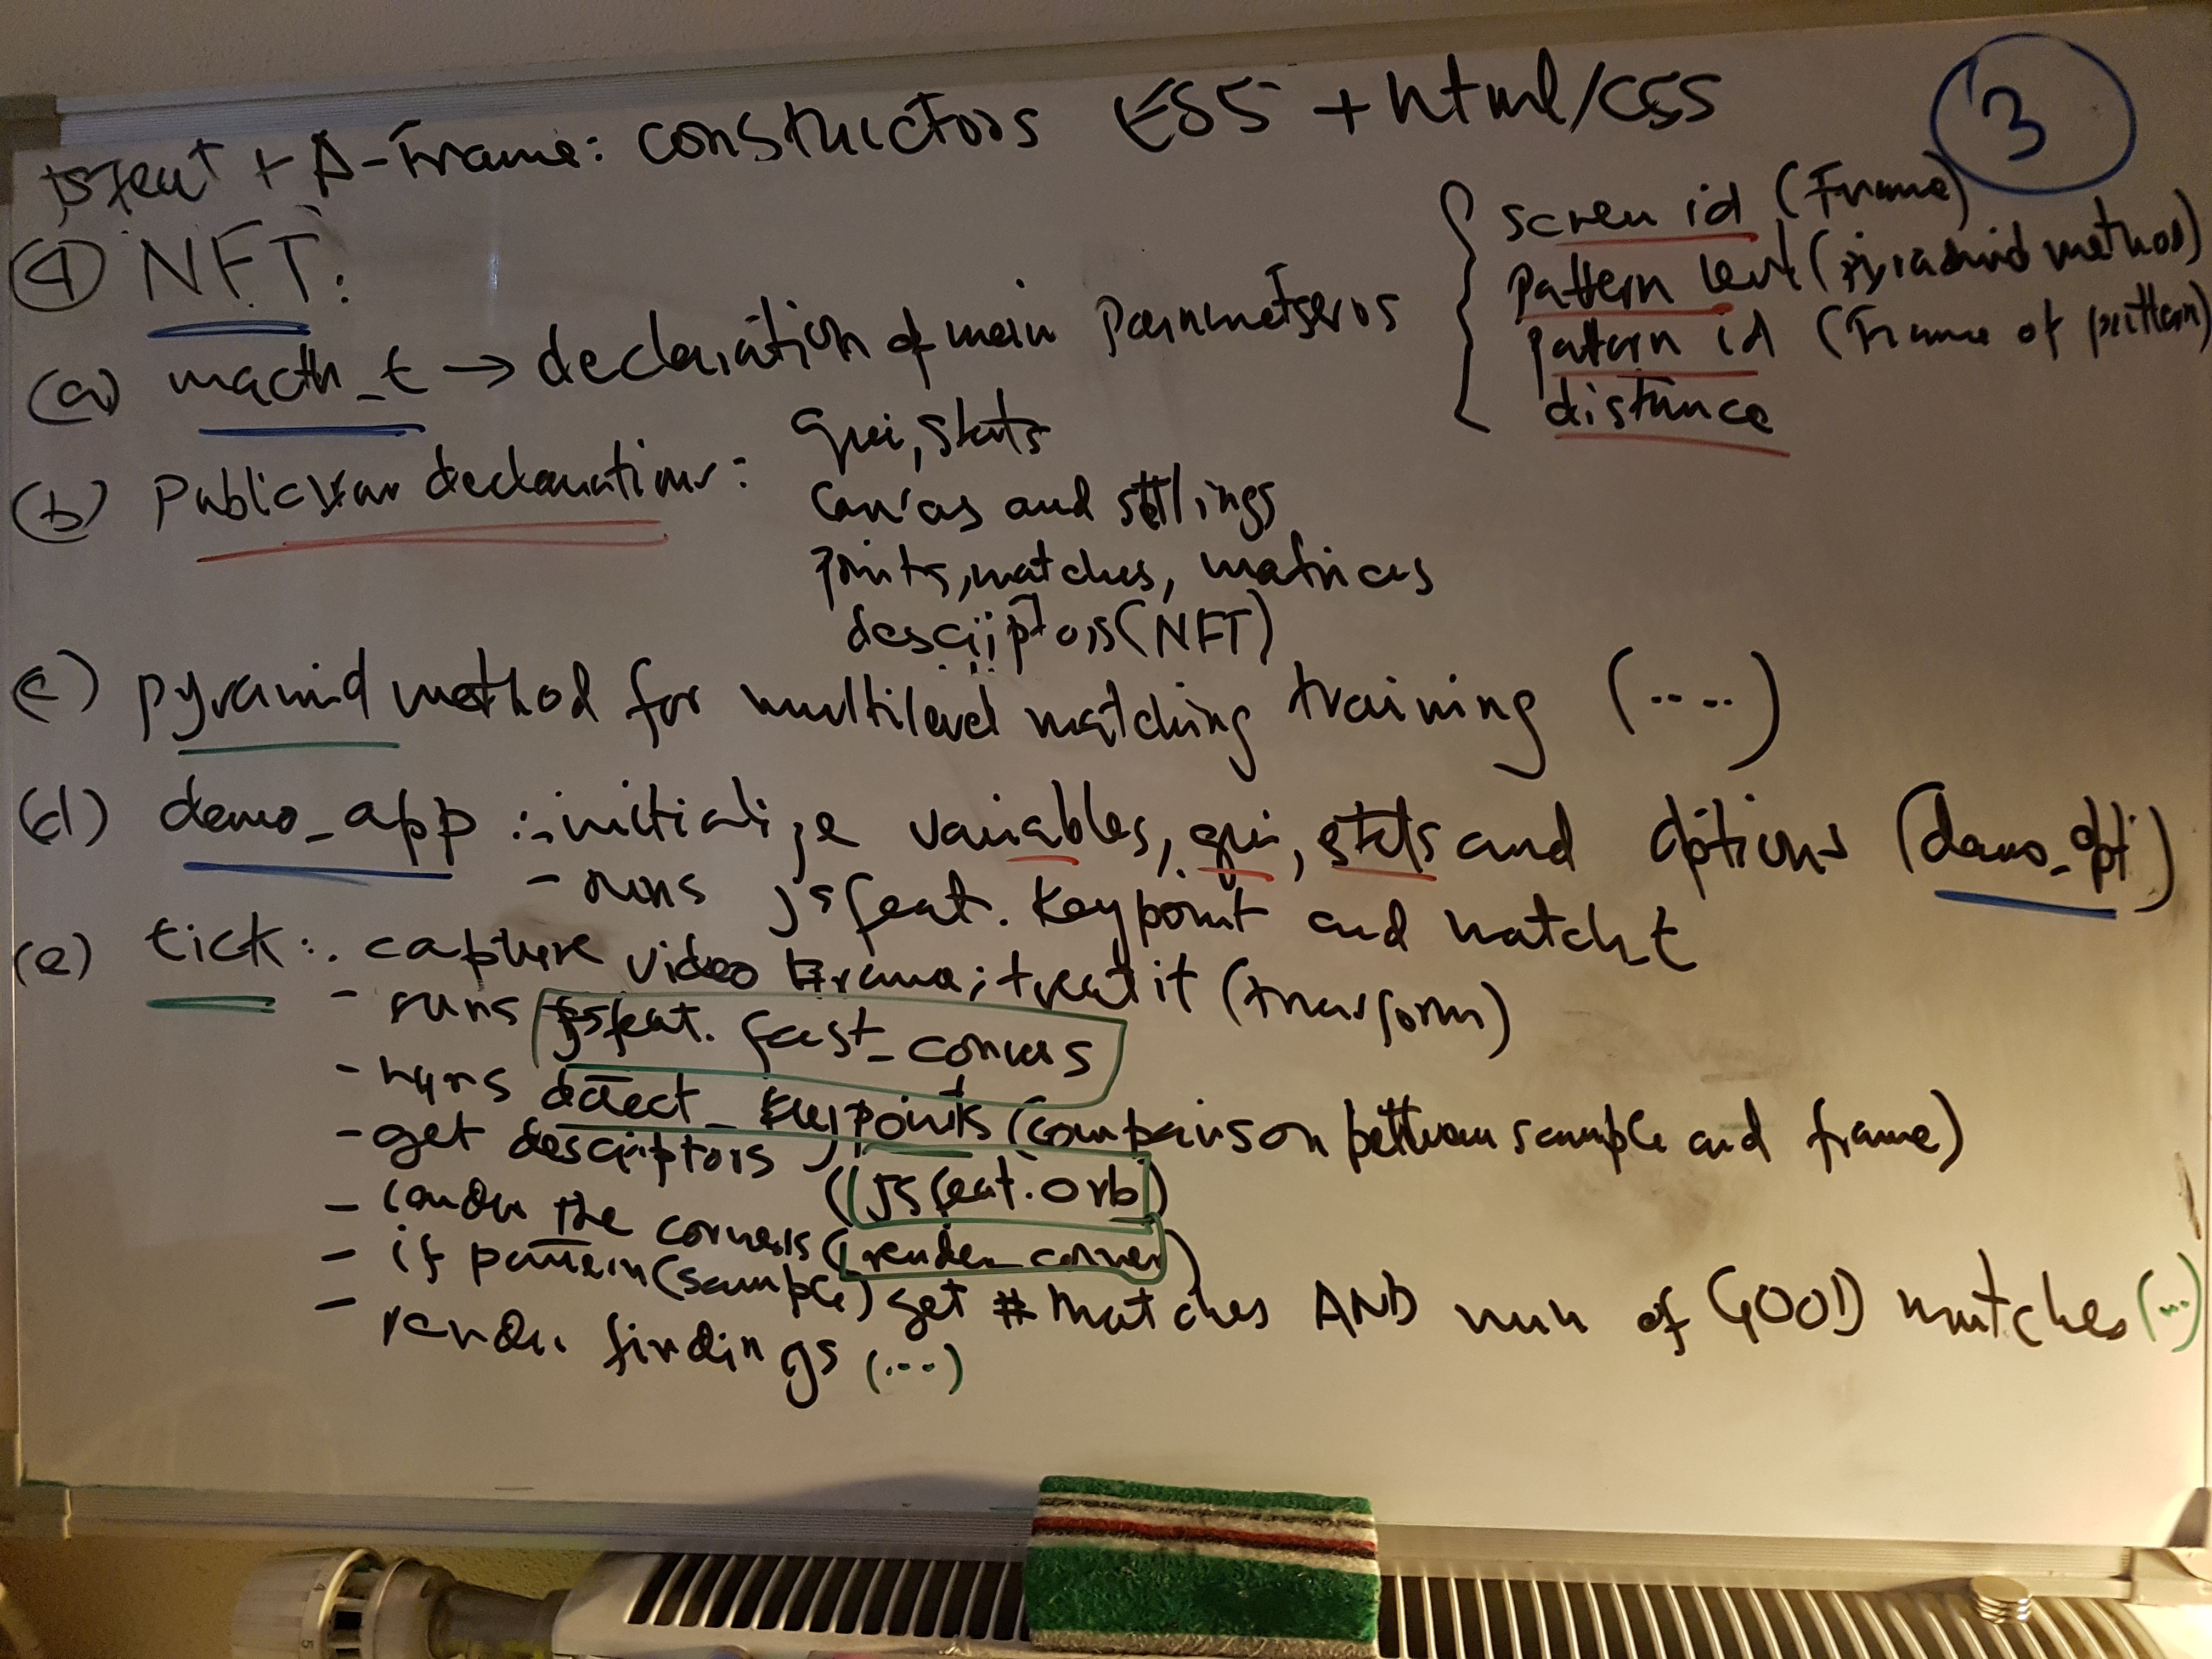 jsfeat + A-Frame: constructors ES5 + html/css
3
④ NFT:
(a) macth_t → declaration of main parnmetseros
screen id (Frame)
pattern level (pyramid method)
pattern id (Frame of pattern)
distance
(b) Public var declarations: gui, stats
canvas and settings
points, matches, matrices
descriptors (NFT)
(c) pyramid method for multilevel matching training (.....)
(d) demo_app :- initialize variables, gui, stats and options (demo_opt)
- runs jsfeat. keypoint and match_t
(e) tick :. capture video frame; treat it (transform)
- runs jsfeat. fast_corners
- runs detect_keypoints (comparison bettween sample and frame)
- get descriptors (jsfeat.orb)
- render the corners (render_corner)
- if pattern (sample) get # matches AND num of GOOD matches (...)
- render findings (...)
4
5